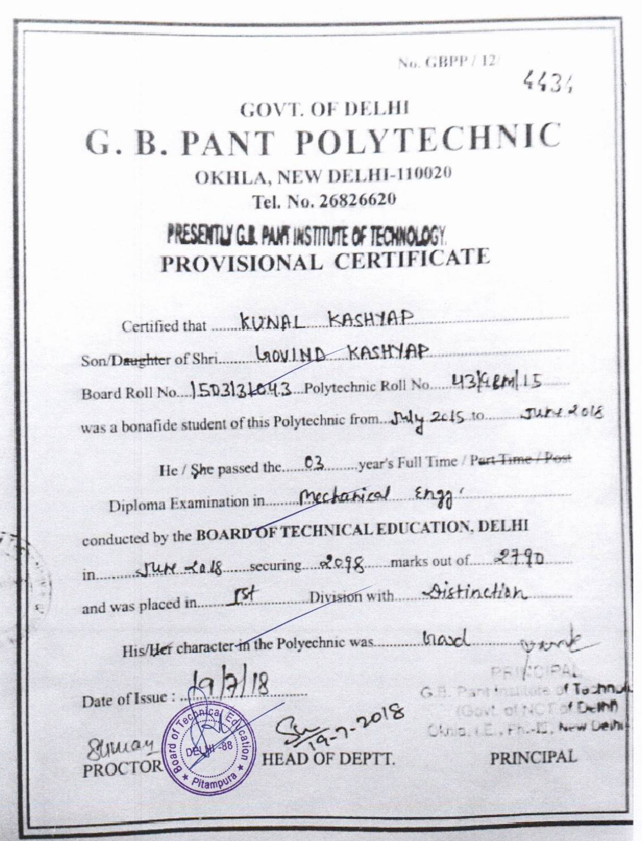 No. GBPP / 12/
4434
GOVT. OF DELHI
G. B. PANT POLYTECHNIC
OKHLA, NEW DELHI-110020
Tel. No. 26826620
PRESENTLY G.B. PANT INSTITUTE OF TECHNOLOGY.
PROVISIONAL CERTIFICATE
Certified that KUNAL KASHYAP
Son/Daughter of Shri GOVIND KASHYAP
Board Roll No. 1503131043 Polytechnic Roll No. 43/GBM/15
was a bonafide student of this Polytechnic from July 2015 to June 2018
He / She passed the 03 year's Full Time / Part Time / Post
Diploma Examination in Mechanical Engg.
conducted by the BOARD OF TECHNICAL EDUCATION, DELHI
in June 2018 securing 2098 marks out of 2790
and was placed in Ist Division with Distinction
His/Her character in the Polyechnic was Good
PRINCIPAL
Date of Issue : 19/7/18
G.B. Pant Institute of Technol
(Govt. of NCT of Delhi)
Okhla, I.E., Ph-III, New Delhi
19-7-2018
Board of Technical Education
DELHI-88
Pitampura
PROCTOR HEAD OF DEPTT. PRINCIPAL